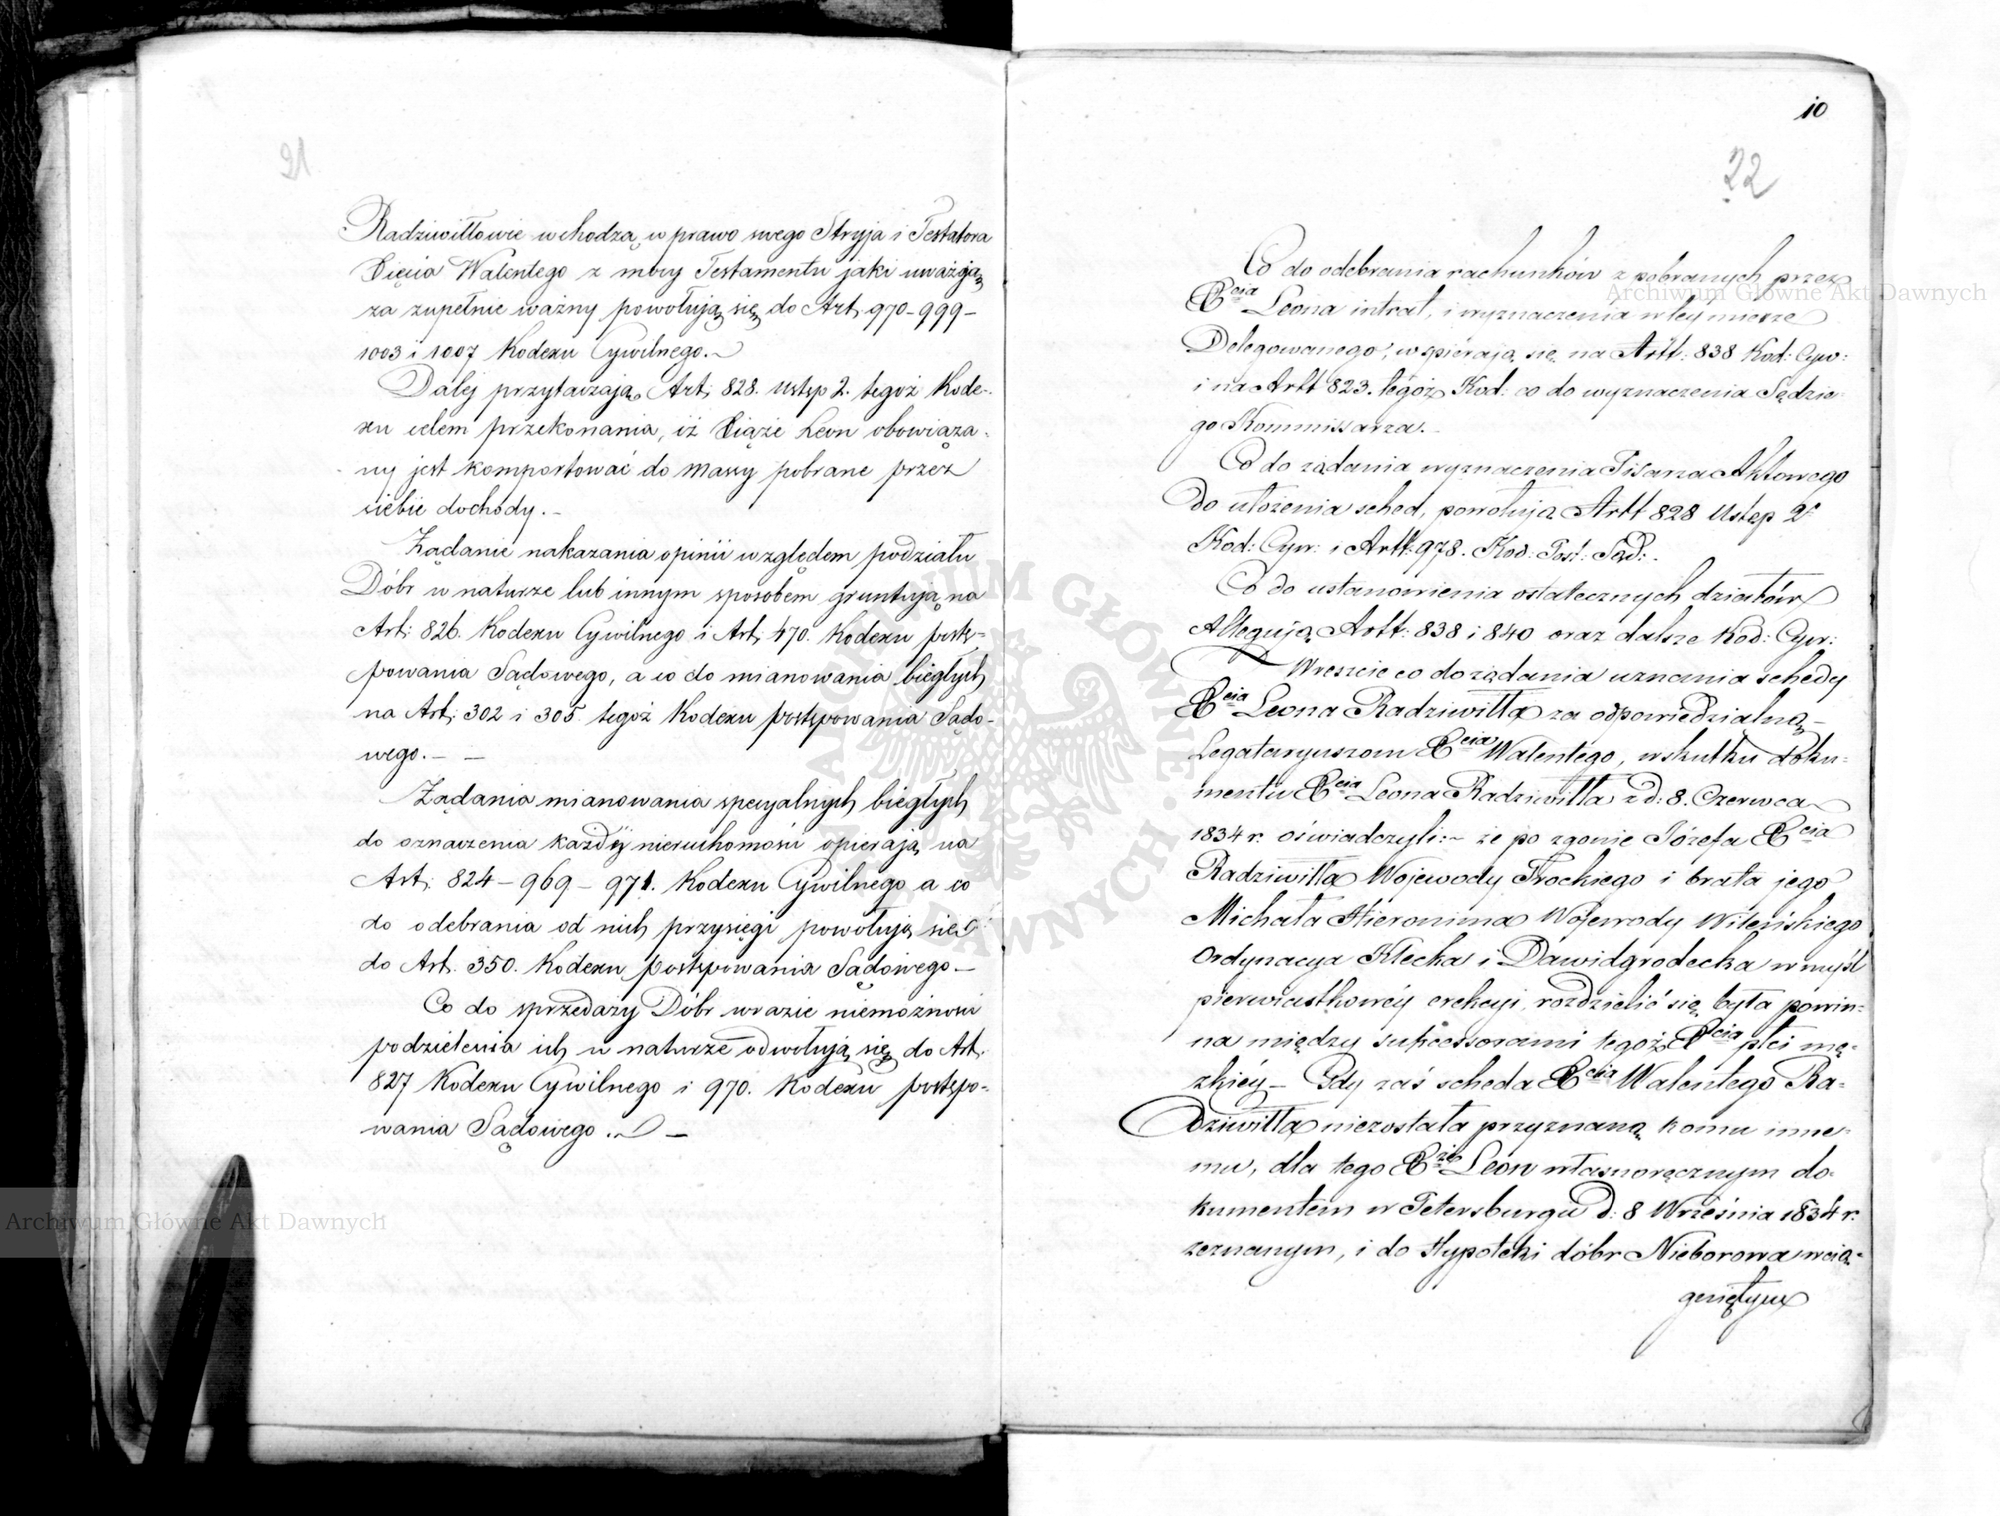 21
Radziwiłłowie wchodzą w prawo swego Stryja i Testatora
Xięcia Walentego z mocy Testamentu jaki uważają
za zupełnie ważny powołują się do Art. 970 – 999 –
1003 i 1007 Kodexu Cywilnego. –
Daléj przytaczają Art: 828. ustęp 2. tegoż Kode-
xu celem przekonania, iż Xiąże Leon obowiąza-
ny jest komportować do massy pobrane przez
siebie dochody. –
Żądanie nakazania opinii względem podziału
Dóbr w naturze lub innym sposobem gruntują na
Art: 826. Kodexu Cywilnego i Art: 470. Kodexu postę-
powania Sądowego, a co do mianowania biegłych
na Art: 302 i 305 tegoż Kodexu postępowania Sądo-
wego. – –
Żądania mianowania specyalnych biegłych
do oznaczenia każdéj nieruchomości opierają na
Art: 824 – 969 – 971. Kodexu Cywilnego a co
do odebrania od nich przysięgi powołują się
do Art. 350. Kodexu postępowania Sądowego –
Co do sprzedaży Dóbr w razie niemożności
podzielenia ich w naturze odwołują się do Art.
827 Kodexu Cywilnego i 970. Kodexu postępo-
wania Sądowego. –
10
22
Co do odebrania rachunków z pobranych przez
Xcia Leona intrat, i wyznaczenia w tey mierze
Delegowanego, wspierają się na Artt: 838 Kod: Cyw:
i na Artt 823. tegoż Kod: co do wyznaczenia Sędzie-
go Kommissarza. –
Co do żądania wyznaczenia Pisarza Aktowego
do ułożenia sched, powołują Artt 828 Ustęp 2
Kod: Cyw: i Artt: 978. Kod: Post: Sąd: –
Co do ustanowienia ostatecznych działów
Allegują Artt: 838 i 840 oraz dalsze Kod: Cyw:
Wreszcie co do żądania uznania schedy
Xcia Leona Radziwiłła za odpowiedzialną –
Legataryuszom Xcia Walentego, w skutku doku-
mentu Xcia Leona Radziwiłła z d: 8. Czerwca
1834 r. oświadczyli: – że po zgonie Józefa Xcia
Radziwiłła Wojewody Trockiego i brata jego
Michała Hieronima Wojewody Wileńskiego
Ordynacya Klecka i Dawidgrodecka w myśl
pierwiastkowéy erekcyi, rozdzielić się była powin-
na między sukcessorami tegoż Xcia płci mę-
zkiéy – Gdy zaś scheda Xcia Walentego Ra-
dziwiłła niezostała przyznaną komu inne-
mu, dla tego Xże Leon własnoręcznym do-
kumentem w Petersburgu d: 8 Września 1834 r.
zeznanym, i do Hypoteki dóbr Nieborowa wcią-
gniętym
Archiwum Główne Akt Dawnych
Archiwum Główne Akt Dawnych
ARCHIWUM GŁÓWNE AKT DAWNYCH